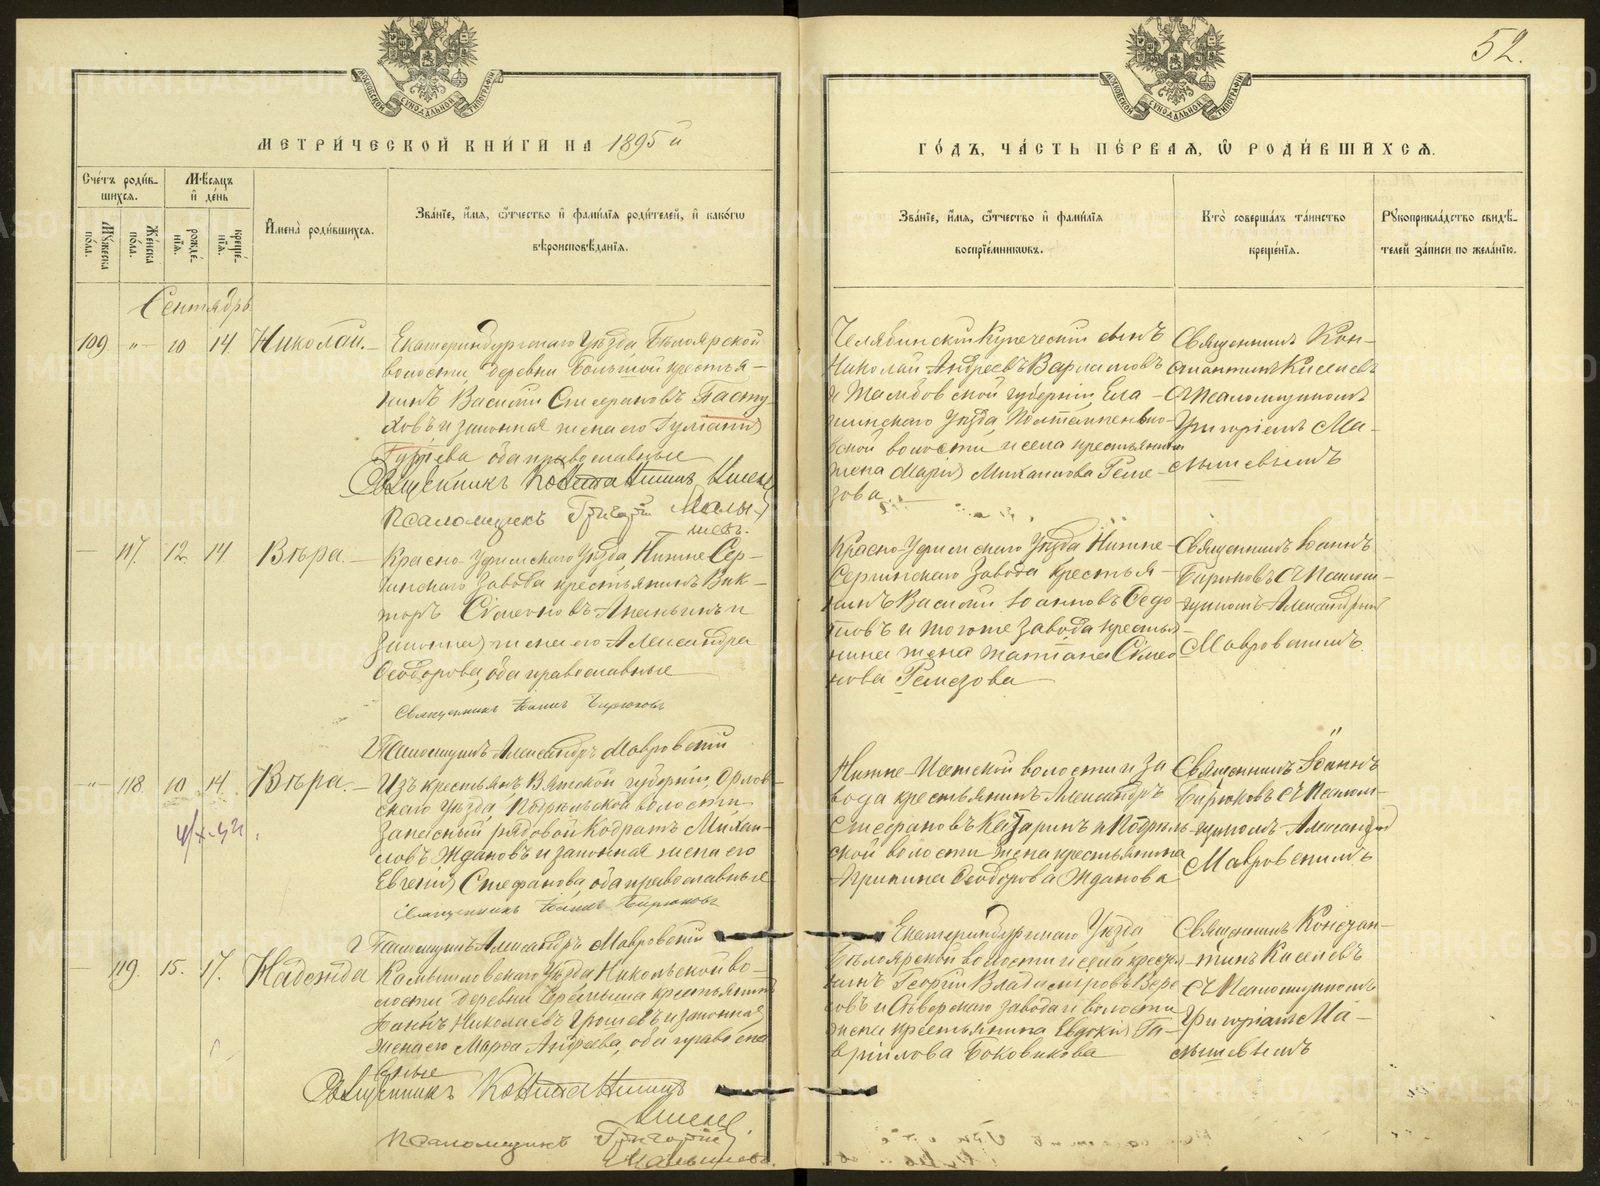 52.
МЕТРИ́ЧЕСКОЙ КНИ́ГИ НА 1895й
ГО́ДЪ, ЧА́СТЬ ПЕ́РВАЯ, Ѡ РОДИ́ВШИХСЯ.
Сче́тъ роди́в-
шихся.
Му́жеска по́ла.
Же́нска по́ла.
Мѣ́сяцъ и де́нь
рожде́-
нїя.
креще́-
нїя.
И҆мена̀ роди́вшихся.
Зва́нїе, и҆́мя, ѻ҆́тчество и҆ фами́лїя роди́телей, и҆ како́гѡ
вѣроисповѣ́данїя.
Зва́нїе, и҆́мя, ѻ҆́тчество и҆ фами́лїя
воспрїе́мниковъ.
Кто̀ соверша́лъ та́инство
креще́нїя.
Рꙋкоприкла́дство свидѣ́-
телей за́писи по жела́нїю.
Сентябрь
109 -"- 10 14 Николай.
Екатеринбургскаго Уѣзда Бѣлоярской
волости, деревни Большой крестья-
нинъ Василій Стефановъ Пасту-
ховъ и законная жена его
оба православные
Священникъ Константинъ
Псаломщикъ Григорій Малы-
шевъ.
Челябинскій Купеческій сынъ
Николай Андреевъ Варламовъ
и Тамбовской губерніи Ела-
жена Марія Михаилова Реме-
зова.
Священникъ Кон-
стантинъ Киселевъ
съ Псаломщикомъ
Григоріемъ Ма-
лышевымъ
— 117. 12. 14 Вѣра. —
Красно-Уфимскаго Уѣзда Нижне Сер-
гинскаго Завода крестьянинъ Вик-
торъ Сѵмеоновъ Ананьинъ и
Законная жена его Александра
Ѳеодорова, оба православные
Священникъ Іоаннъ Бирюковъ
Псаломщикъ Александръ Мавровскій
Красно-Уфимскаго Уѣзда Нижне-
Сергинскаго Завода Крестья-
нинъ Василій Іоанновъ Ѳедо-
товъ и тогоже Завода крестья-
нина жена Татіана Сѵмео-
нова Ремезова
Священникъ Іоаннъ
Бирюковъ съ Псалом-
щикомъ Александромъ
Мавровскимъ.
-"- 118. 10 14. Вѣра. —
Изъ крестьянъ Вятской губерніи, Орлов-
скаго Уѣзда, волости
Запасный рядовой Кодратъ Михаи-
ловъ Ждановъ и законная жена его
Евгенія Стефанова, оба православные
Священникъ Іоаннъ Бирюковъ
Псаломщикъ Александръ Мавровскій
Нижне-Исетской волости и за
вода крестьянинъ Александръ
Стефановъ
ской волости жена крестьянина
Агрипина Ѳеодорова Жданова
Священникъ Іоаннъ
Бирюковъ съ Псалом-
щикомъ Александромъ
Мавровскимъ
— 119. 15. 17. Надежда
Камышловскаго Уѣзда Никольской во-
лости деревни крестьянинъ
Іоаннъ Николаевъ и законная
жена его Марѳа Андреева, оба правосла
вные
Священникъ Константинъ
Псаломщикъ Григорій
Малышевъ.
Екатеринбургскаго Уѣзда
Бѣлоярской волости и села крестья-
нинъ Георгій Владиміровъ
Завода и волости
жена крестьянина Евдокія Га-
вріилова Боковикова
Священникъ Констан-
тинъ Киселевъ
съ Псаломщикомъ
Григоріемъ Ма-
лышевымъ
METRIKI.GASO-URAL.RU